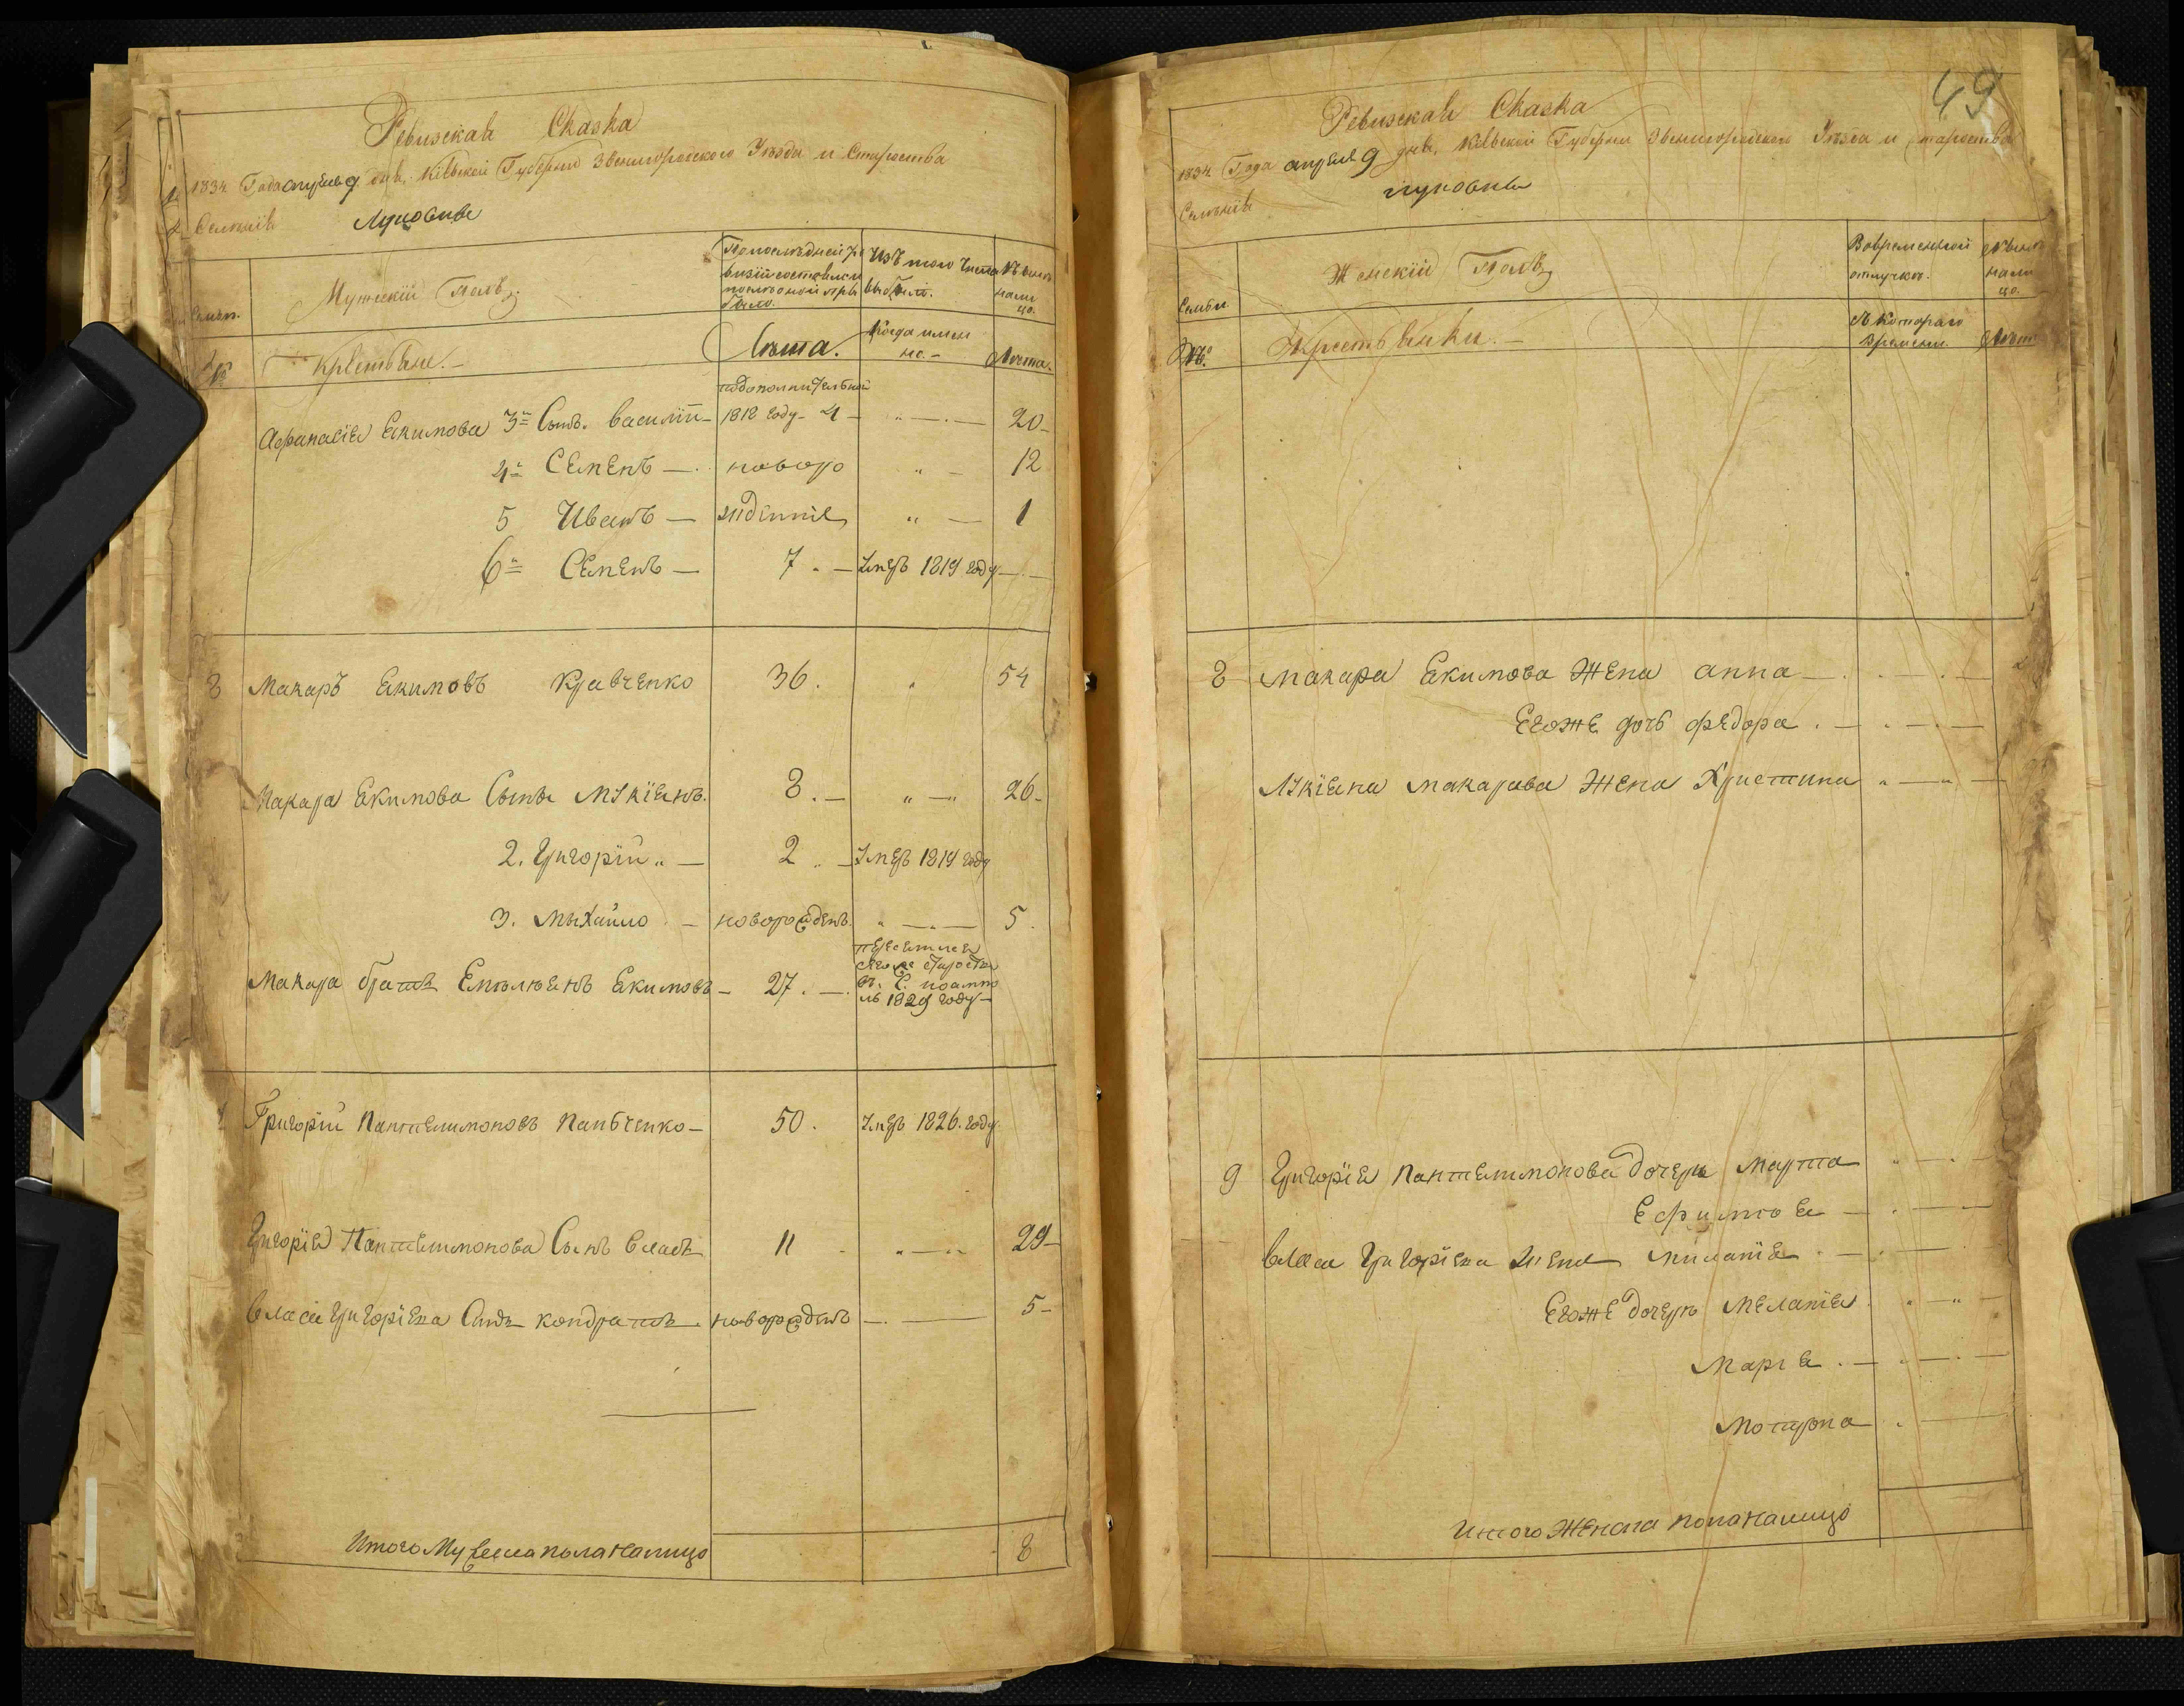 Ревизская Сказка
1834 Года апреля 9 дня, Кіевской Губерніи Звенигородского Уезда и Староства
Селенія Луковки
Мужескій Полъ
По последней ревизіи состояло и после оной прибыло.
Изъ того числа выбыло.
Ныне налицо.
Семьи.
№
Крестьяне.
Лета.
Когда именно.
Лета.
по дополнительной
Афанасія Екимова 3й Сынъ. василій 1812 году 4 20
4й Семенъ новоро 12
5 Иванъ жденніе 1
6й Семенъ 7 Умеръ 1819 году
8 Макаръ Екимовъ Кравченко 36. 54
Макара Екимова Сыны Лукіянъ. 8. 26
2. Григорій 2 Умеръ 1819 году
3. Мыхайло новорожденъ 5
Макара братъ Емельянъ Екимовъ 27.
староства
въ С.
1829 году
Григорій Пантелимоновъ Панченко 50. Умеръ 1826. году
Григорія Пантелимонова Сынъ власъ 11 29
власа Григоріева Сынъ кондратъ новорожденъ 5
Итого Мужеска пола налицо 8
49
Ревизская Сказка
1834 Года апреля 9 дня, Кіевской Губерніи Звенигородского Уезда и Староства
Селенія Луковки
Женскій Полъ
Во временной отлучке.
Ныне налицо.
Семьи
№
Крестьянки.
Съ котораго времени.
Лета
8 Макара Екимова Жена анна
Егоже дочь федора
Лукіяна макарова Жена Христина
9 Григорія Пантелимонова дочери марта
Ефимія
власа Григоріева жена миланія
Егоже дочери меланія
Марія
Мотрона
Итого Женска пола налицо